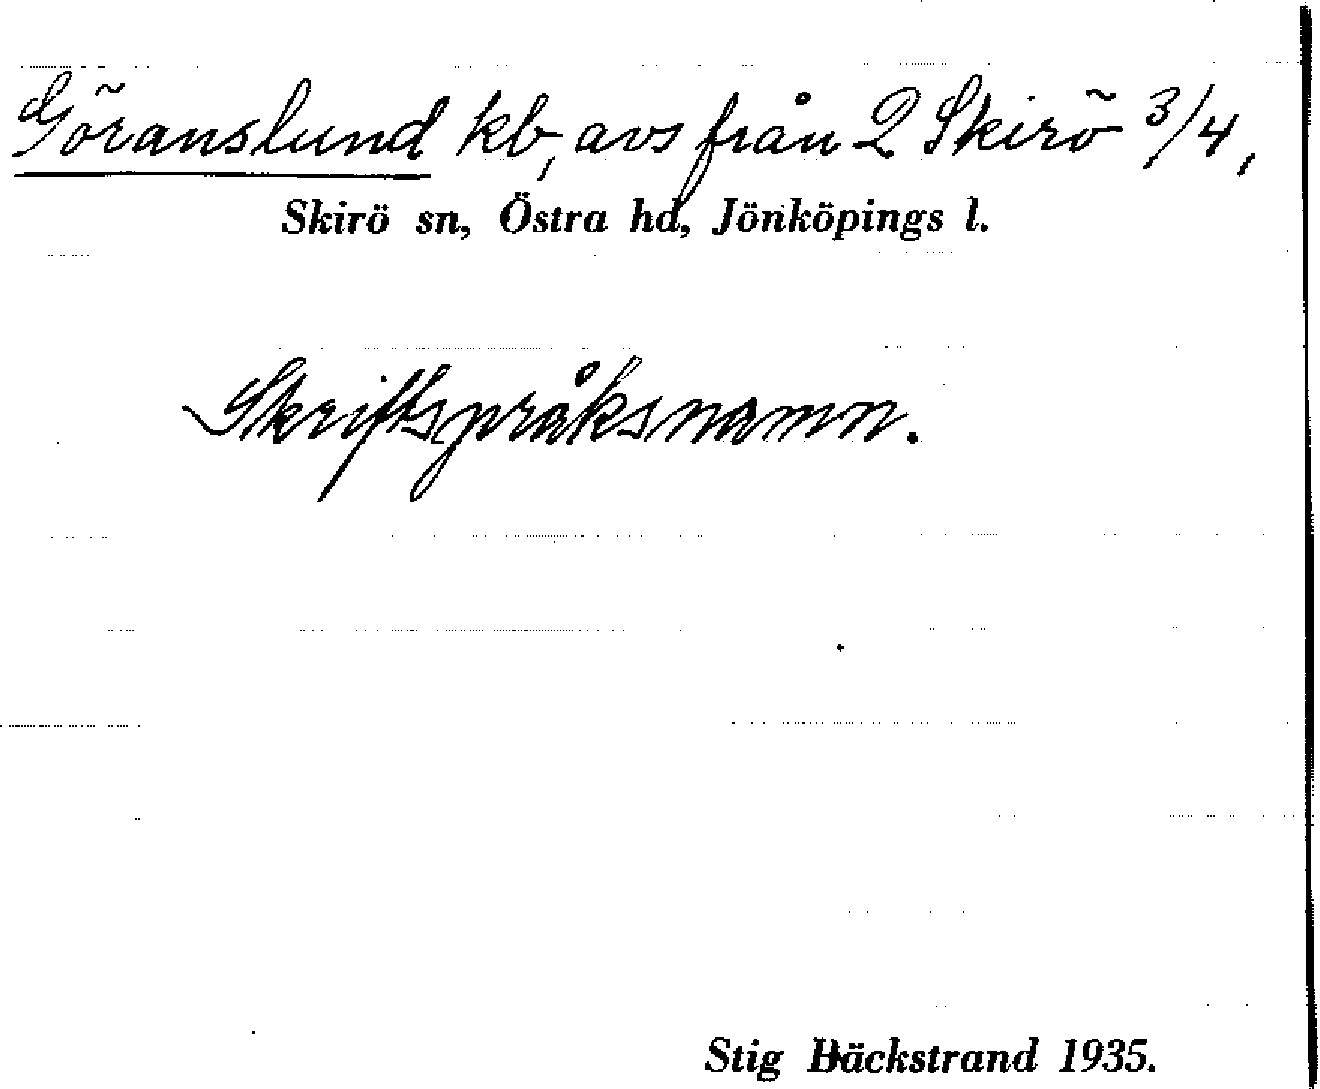 Göranslund kb, avs från 2 Skirö 3/4,
Skirö sn, Östra hd, Jönköpings l.
Skriftspråksnamn.
Stig Bäckstrand 1935.